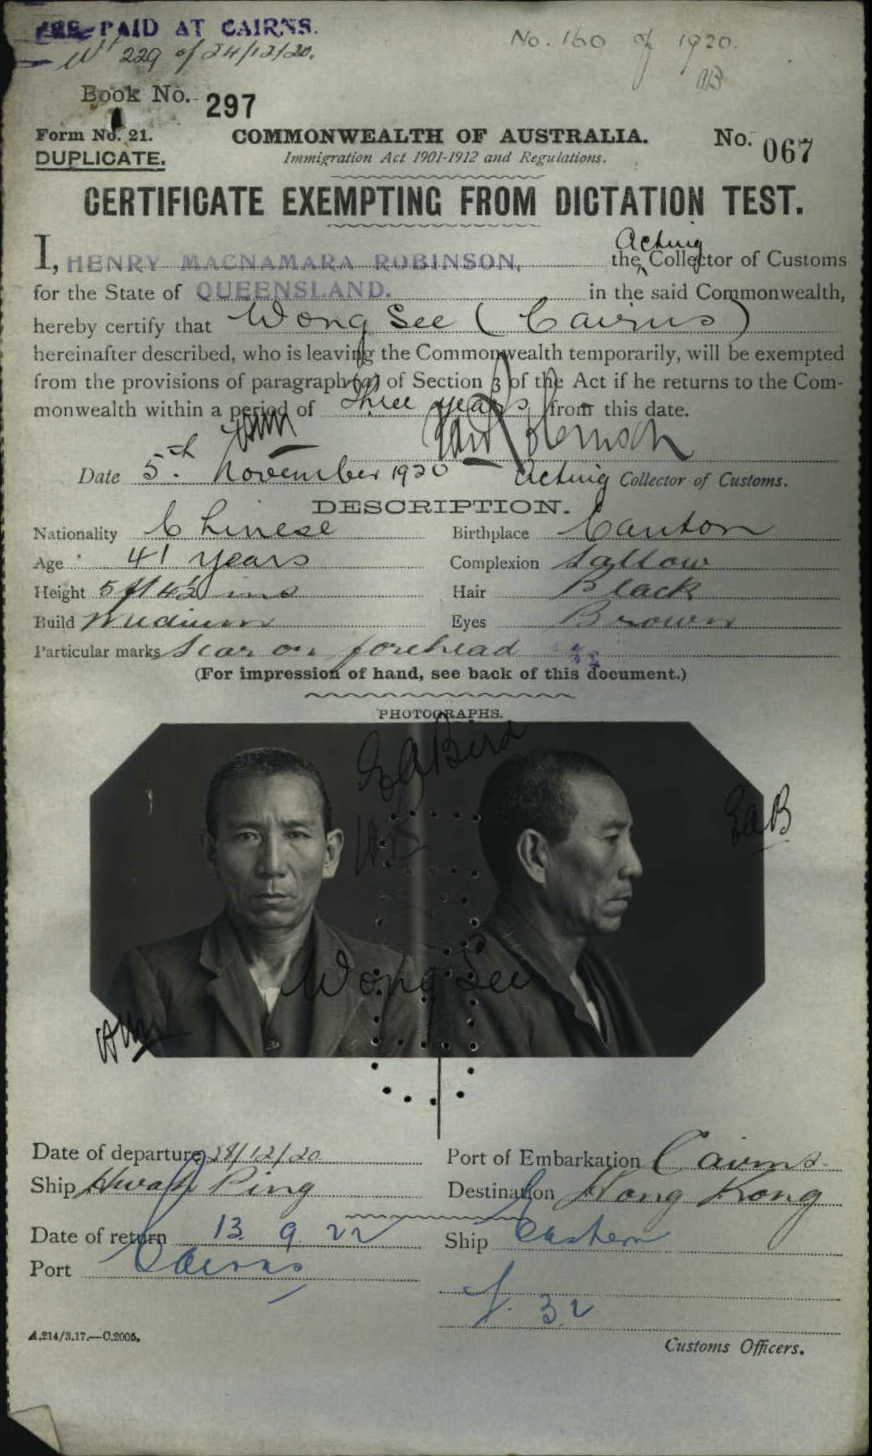 FEE PAID AT CAIRNS.
No 229 of 24/12/20.
No. 160 of 1920.
Book No. 297
Form No. 21.
COMMONWEALTH OF AUSTRALIA.
No. 067
DUPLICATE.
Immigration Act 1901-1912 and Regulations.
CERTIFICATE EXEMPTING FROM DICTATION TEST.
I, HENRY MACNAMARA ROBINSON, the Acting Collector of Customs
for the State of QUEENSLAND. in the said Commonwealth,
hereby certify that Wong See (Cairns)
hereinafter described, who is leaving the Commonwealth temporarily, will be exempted
from the provisions of paragraph (a) of Section 3 of the Act if he returns to the Com-
monwealth within a period of three years from this date.
Date 5th November 1920 Acting Collector of Customs.
DESCRIPTION.
Nationality Chinese Birthplace Canton
Age 41 years Complexion Sallow
Height 5 ft 4½ ins Hair Black
Build Medium Eyes Brown
Particular marks Scar on forehead
(For impression of hand, see back of this document.)
PHOTOGRAPHS.
GABird
GaB
Wong See
Date of departure 28/12/20 Port of Embarkation Cairns.
Ship Hwah Ping Destination Hong Kong
Date of return 13 9 22 Ship Eastern
Port Cairns
32
A.214/3.17.—C.2005.
Customs Officers.